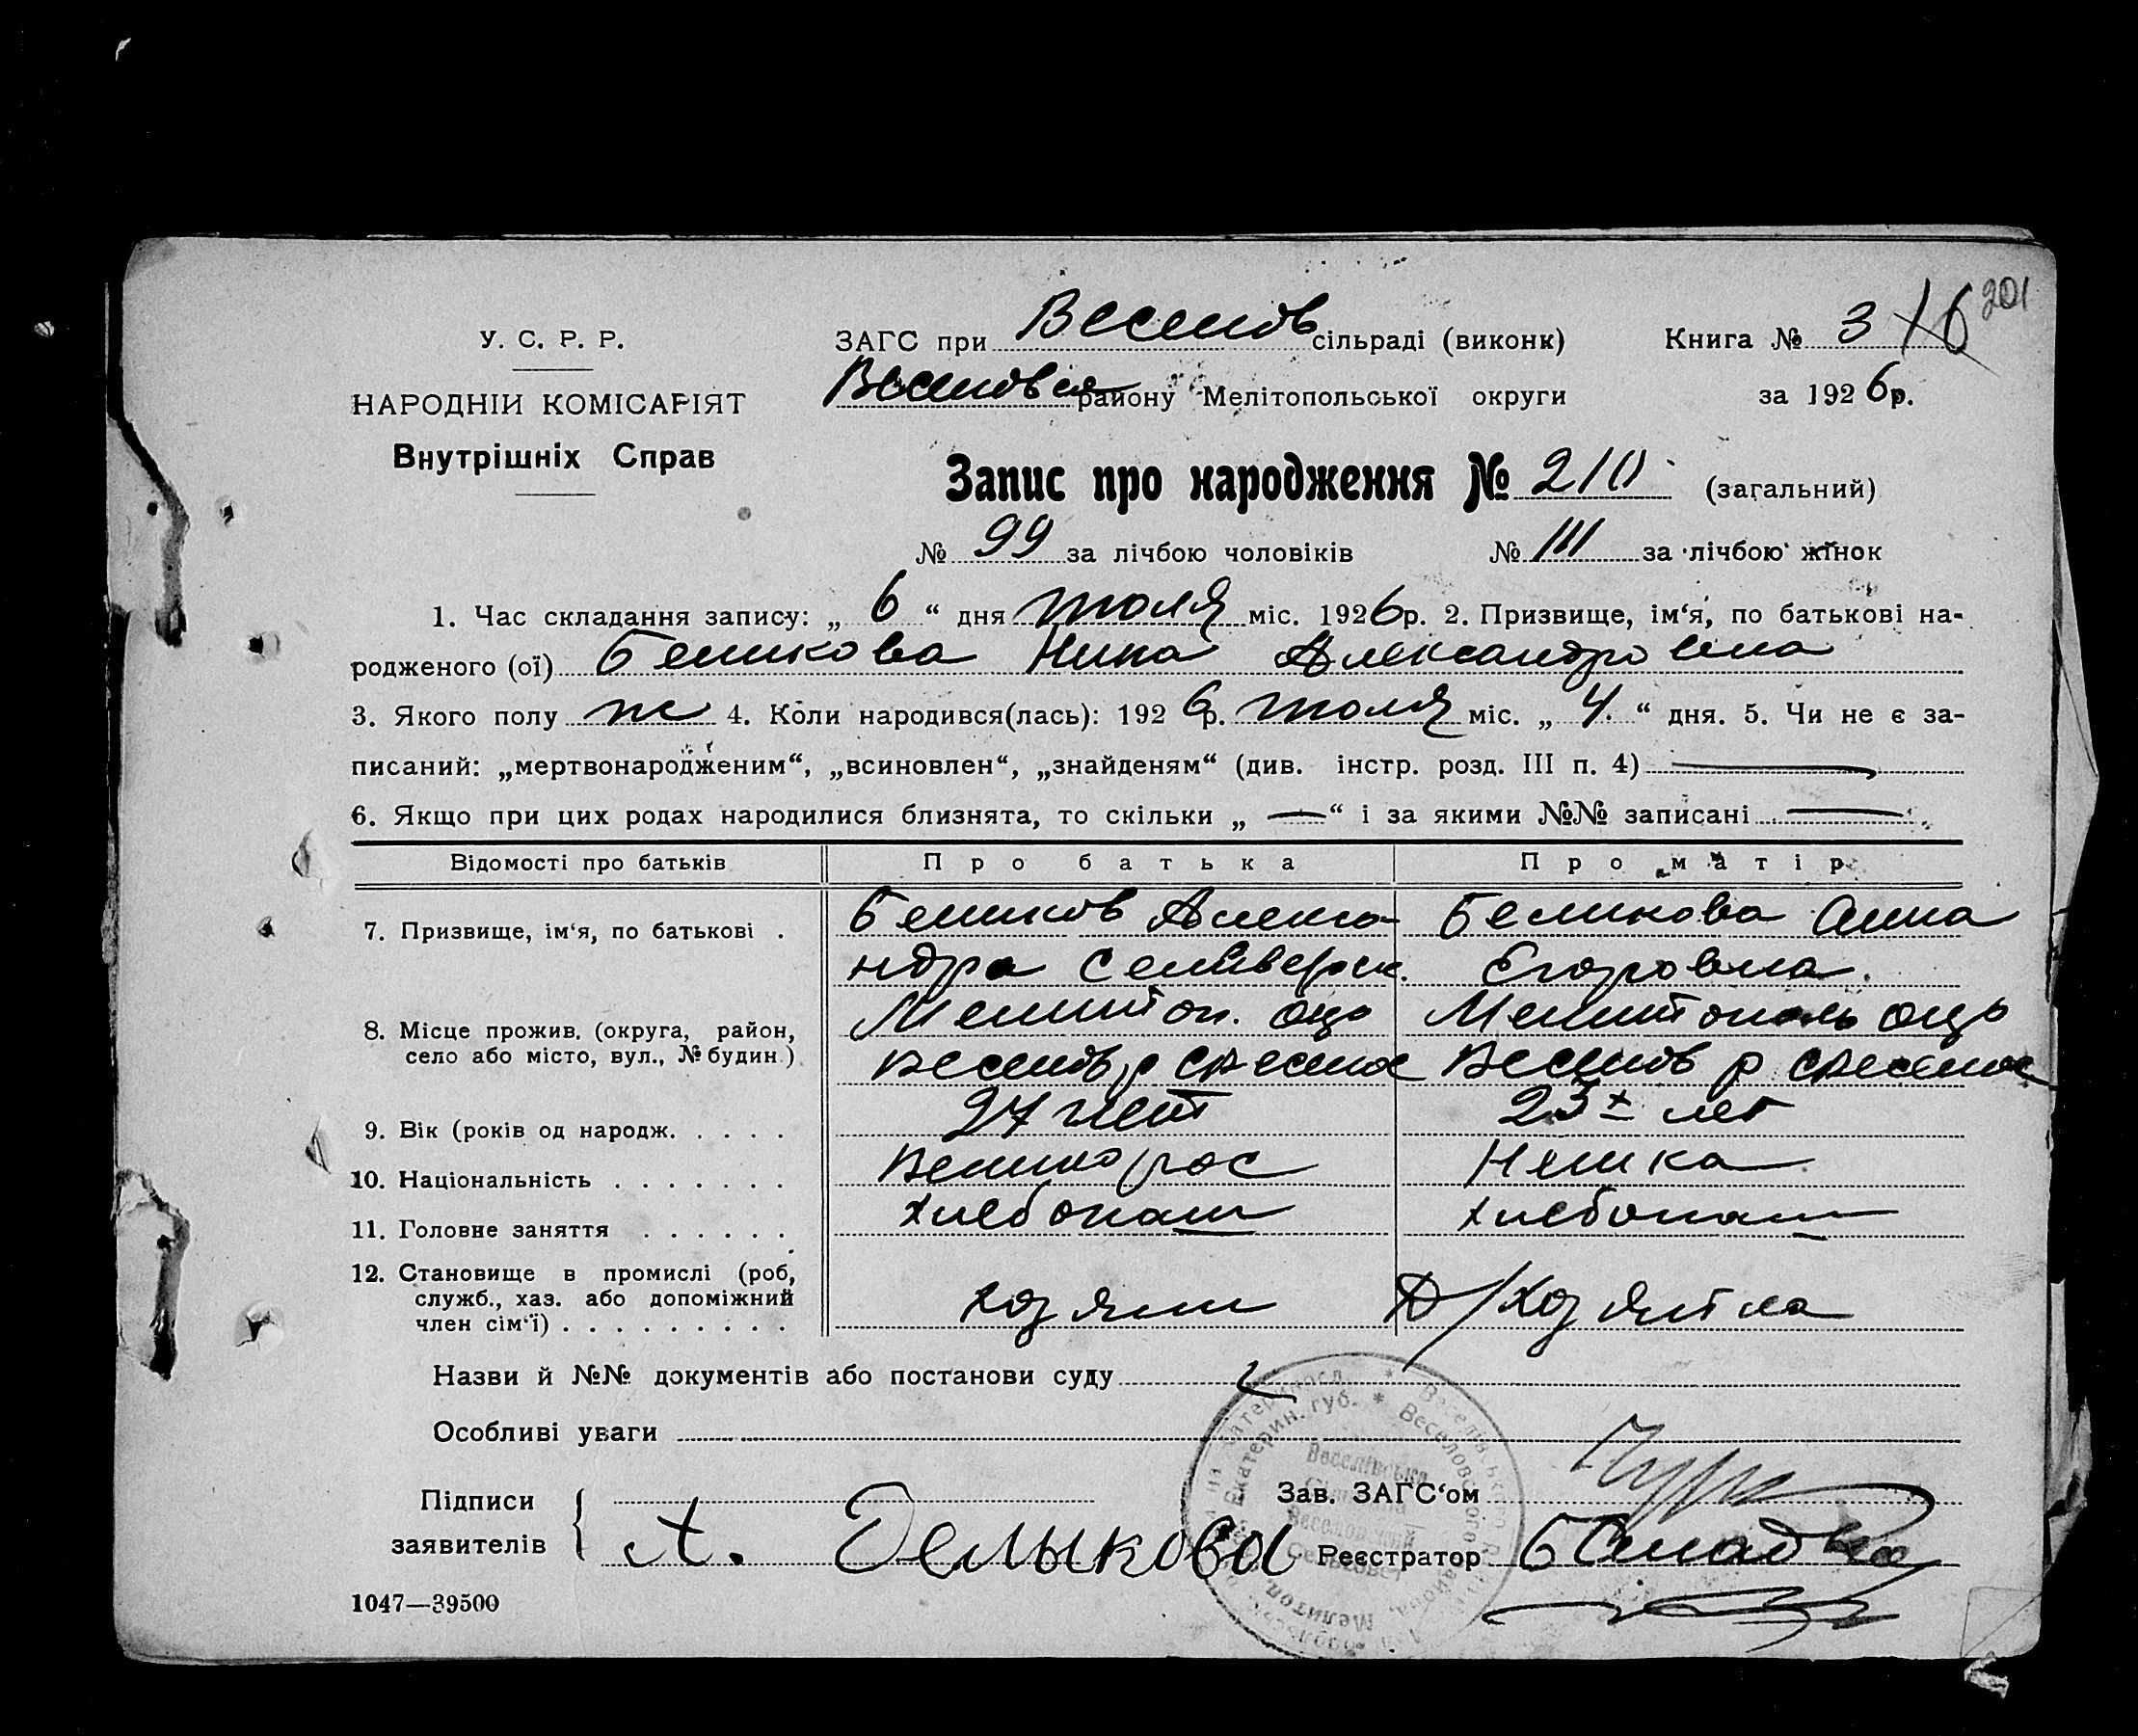 201
У. С. Р. Р.
НАРОДНІЙ КОМІСАРІЯТ
Внутрішніх Справ
ЗАГС при Веселов сільраді (виконк)
Веселовск району Мелітопольської округи
Книга № 3
за 1926р.
Запис про народження № 210 (загальний)
№ 99 за лічбою чоловіків № 111 за лічбою жінок
1. Час складання запису: „ 6 “ дня июля міс. 1926р. 2. Призвище, ім‘я, по батькові на-
родженого (ої) Беликова Нина Александровна
3. Якого полу ж 4. Коли народився(лась): 1926р. июля міс. „ 4. “ дня. 5. Чи не є за-
писаний: „мертвонародженим“, „всиновлен“, „знайденям“ (див. інстр. розд. III п. 4)
6. Якщо при цих родах народилися близнята, то скільки „ — “ і за якими №№ записані —
Відомості про батьків Про батька Про матір
7. Призвище, ім‘я, по батькові . Беликов Алекса- Беликова Анна
ндра Селиверск. Егоровна.
8. Місце прожив. (округа, район, Мелитоп. окр Мелитополь окр
село або місто, вул., № будин.) Веселов р с Весілое Веселов р с Веселое
9. Вік (років од народж. . . . . 27 лет 23 лет
10. Національність . . . . . . . Великорос Немка
11. Головне заняття . . . . . . Хлебопаш Хлебопаш
12. Становище в промислі (роб,
служб., хаз. або допоміжний
член сім‘ї) . . . . . . . . . Хозяин Д/Хозяйка
Назви й №№ документів або постанови суду
Особливі уваги
Підписи
заявителів А. Белыкова
Зав. ЗАГС‘ом
Реєстратор
Екатерин. губ. * Веселовского района, Мелитоп.
Веселівська
Веселовский
Сельсовет
1047—39500